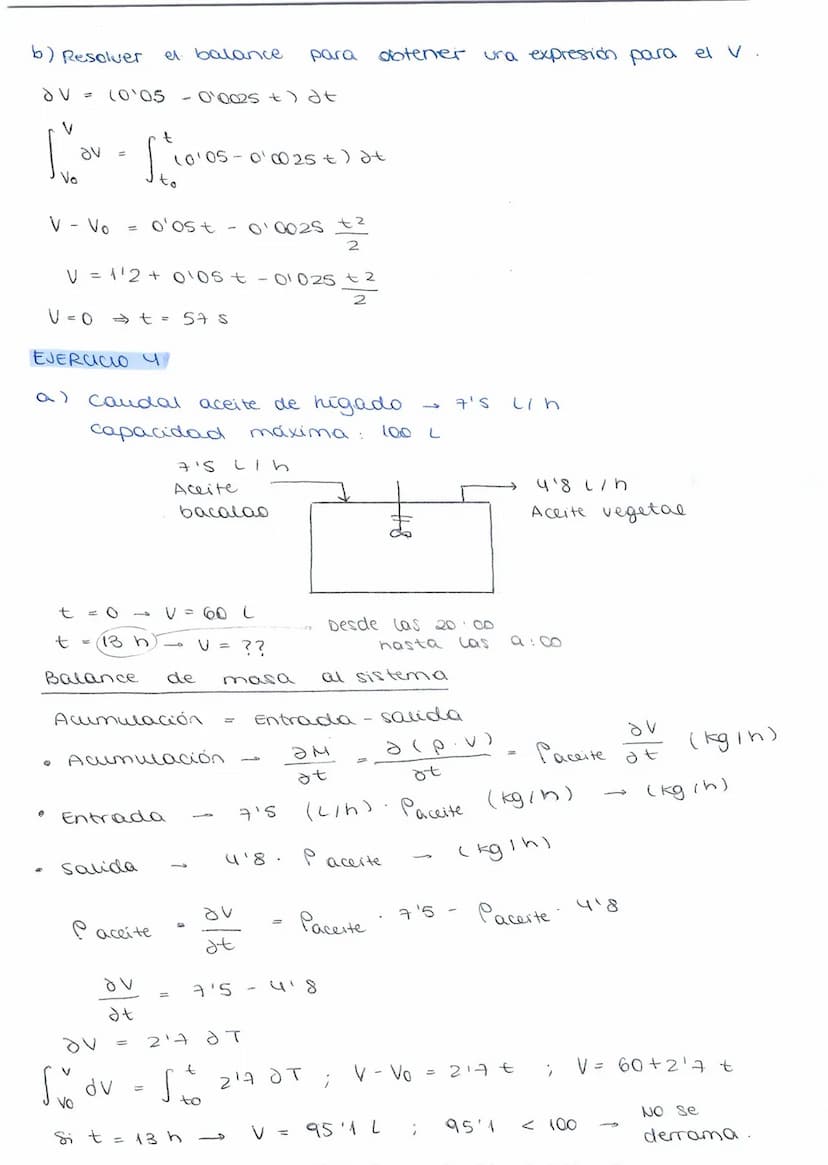 b) Resolver el balance para obtener una expresión para el V.
∂V = (0'05 - 0'0025 t) ∂t
∫_{V₀}^{V} ∂V = ∫_{t₀}^{t} (0'05 - 0'0025 t) ∂t
V - V₀ = 0'05 t - 0'0025 t²/2
V = 1'2 + 0'05 t - 0'025 t²/2
V = 0 ⇒ t = 57 s
EJERCICIO 4
a) Caudal aceite de hígado → 7'5 L/h
capacidad máxima: 100 L
7'5 L/h
Aceite
bacalao
4'8 L/h
Aceite vegetal
t = 0 → V = 60 L
t = 13 h → V = ??
Desde las 20:00
hasta las 9:00
Balance de masa al sistema
Acumulación = Entrada - salida
• Acumulación → ∂M/∂t = ∂(ρ·V)/∂t = ρ aceite ∂V/∂t (kg/h)
• Entrada → 7'5 (L/h) · ρ aceite (kg/h) → (kg/h)
• Salida → 4'8 · ρ aceite → (kg/h)
ρ aceite = ∂V/∂t = ρ aceite · 7'5 - ρ aceite · 4'8
∂V/∂t = 7'5 - 4'8
∂V = 2'7 ∂T
∫_{V₀}^{V} dV = ∫_{t₀}^{t} 2'7 ∂T ; V - V₀ = 2'7 t ; V = 60 + 2'7 t
Si t = 13 h → V = 95'1 L ; 95'1 < 100 → NO se
derrama.